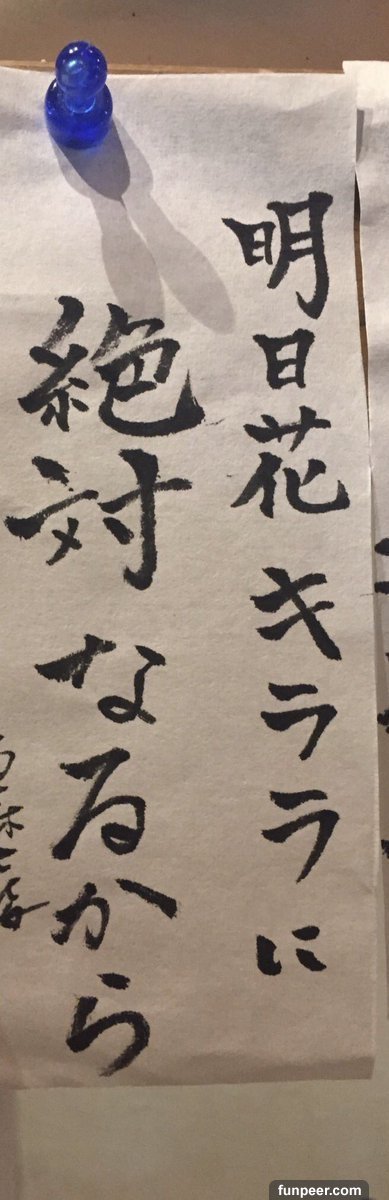 明日花キララに
絶対なるから
funpeer.com